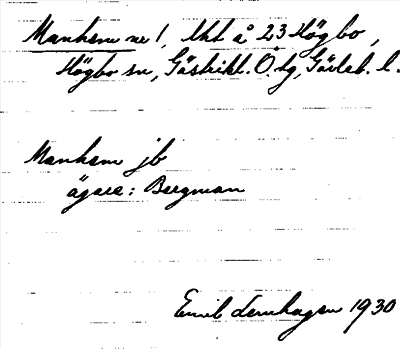 Manhem nr 1, lht å 23 Högbo,
Högbo sn, Gästrikl. Ö. tg, Gävleb. l.
Manhem jb
ägare: Bergman
Emil Lernhagen 1930